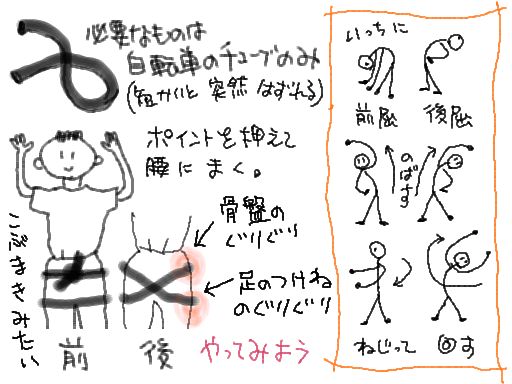 必要なものは
自転車のチューブのみ
(短かいと突然はずれる)
ポイントを押えて
腰にまく。
骨盤の
ぐりぐり
足のつけね
のぐりぐり
こぶまきみたい
前
後
やってみよう
いっちに
前屈
後屈
のばす
ねじって
回す